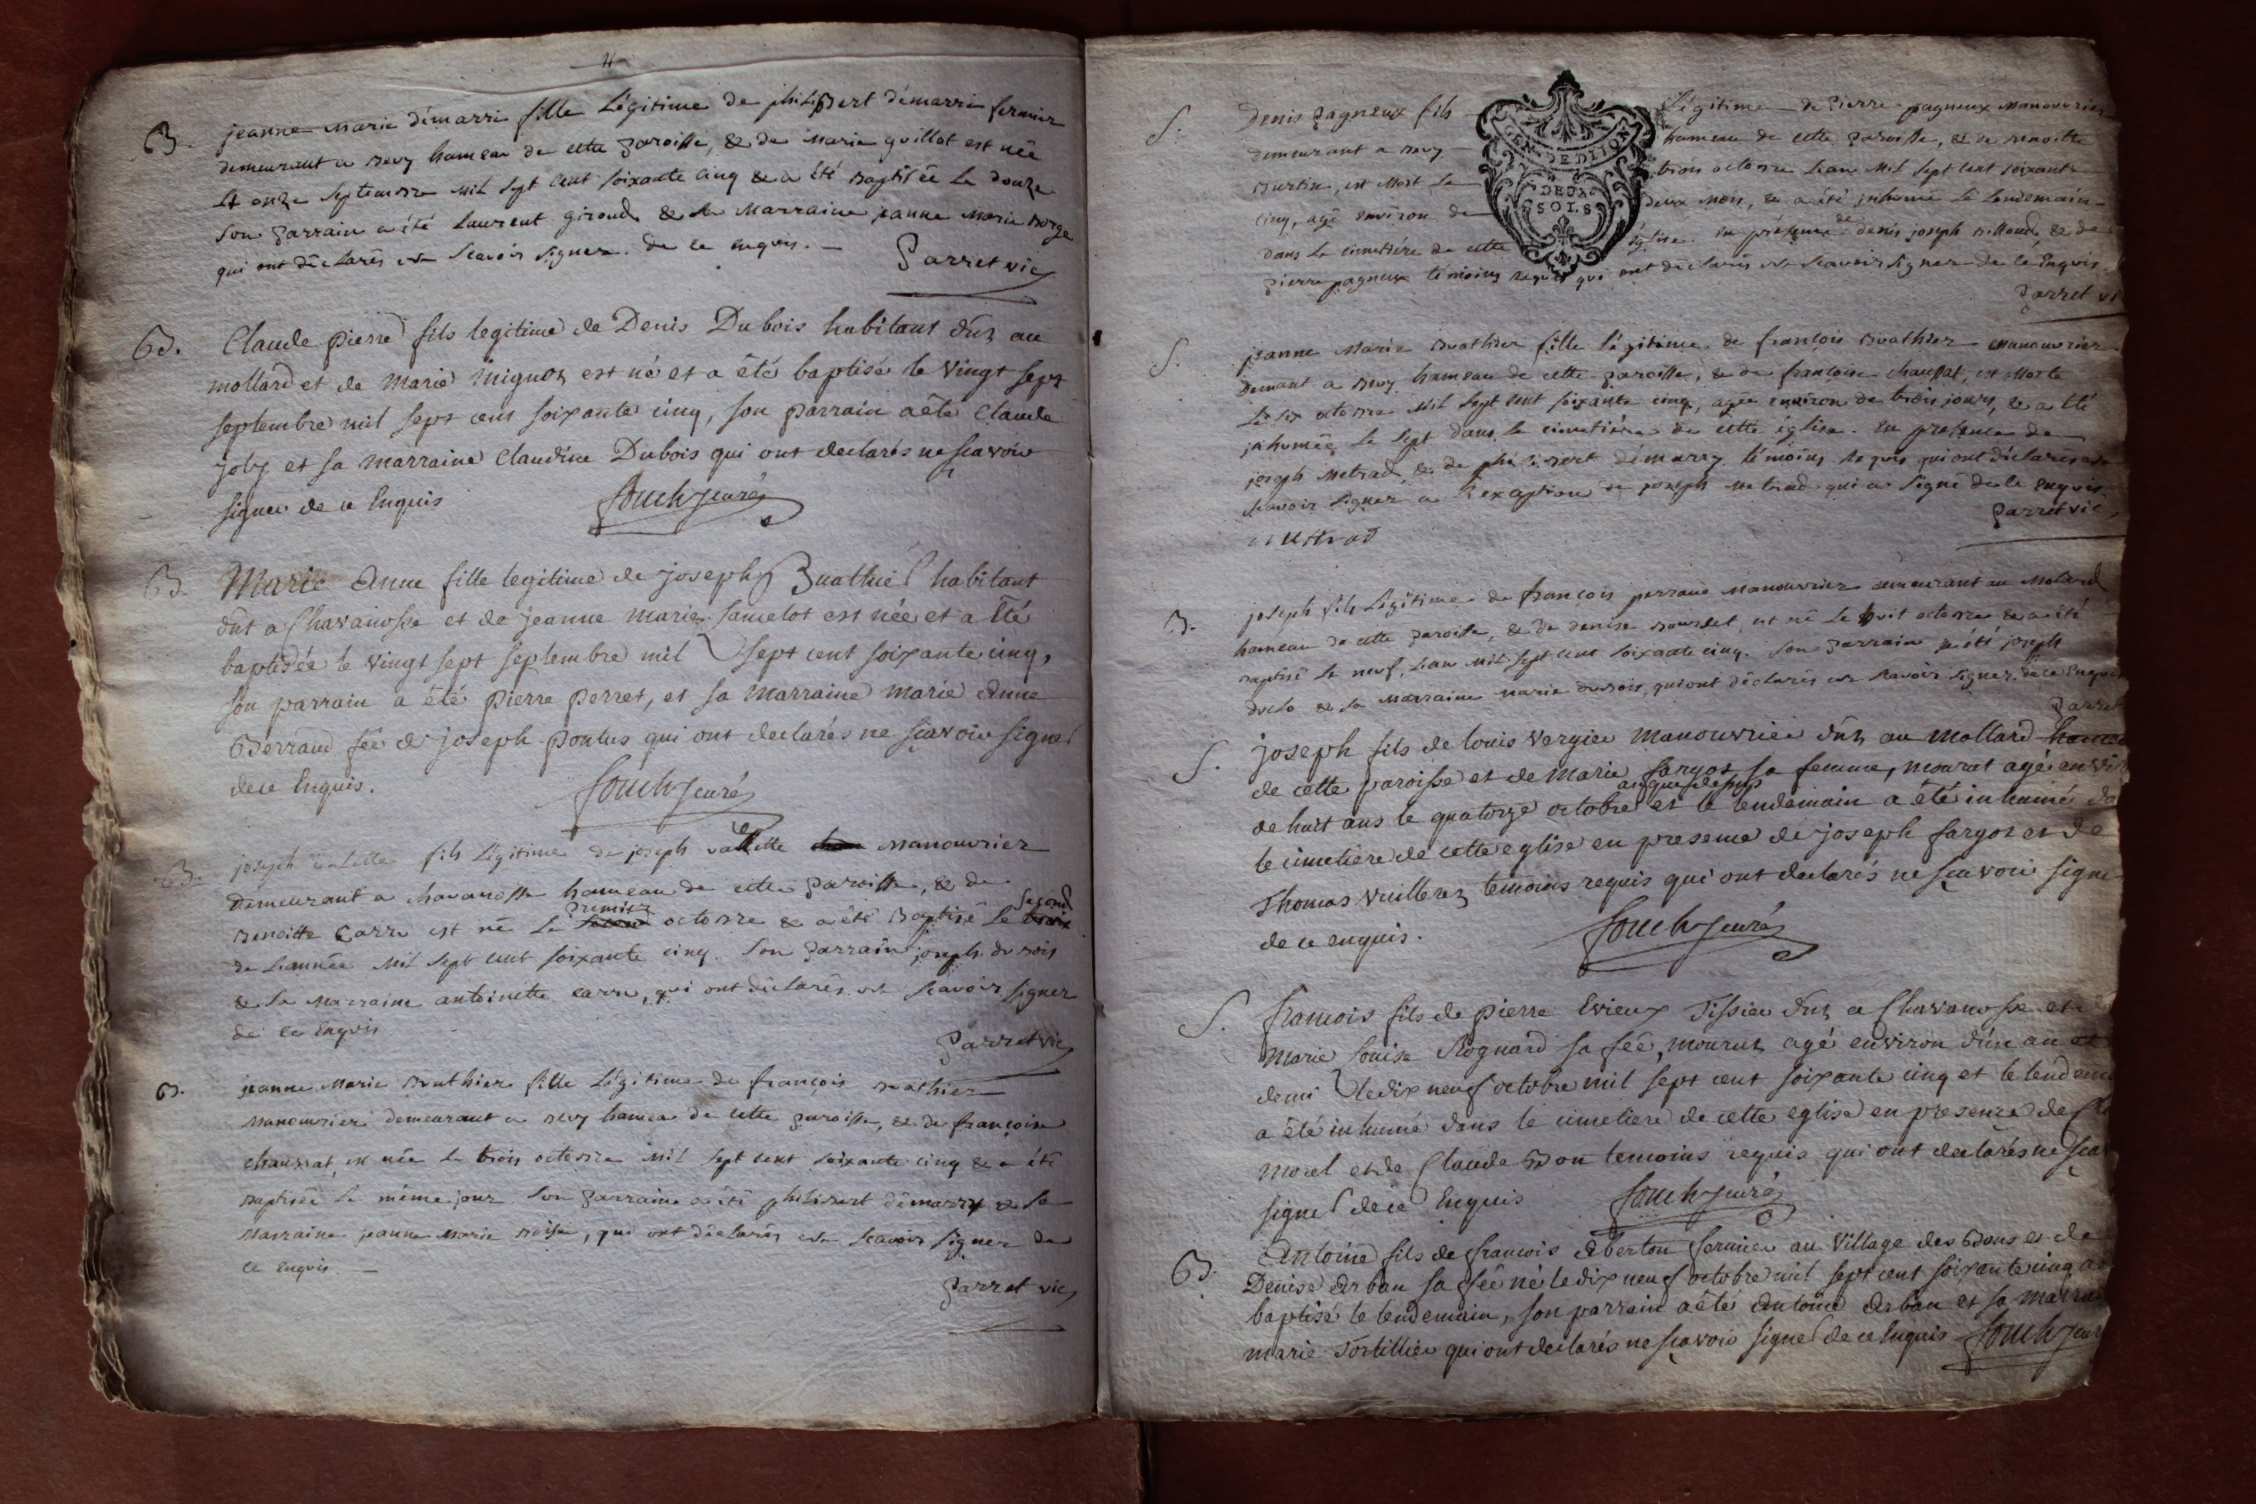 4
B. jeanne marie démarri fille Légitime de philibert démarri fermier
demeurant a bevy hameau de cette paroisse, & de marie guillot est née
Le onze septembre mil sept cent soixante cinq & a été baptisée Le douze
son parrain a été Laurent giroud & sa marraine jeanne marie
qui ont déclarés ne scavoir signer. de ce enquis. —
Parret vic
B. Claude pierre fils legitime de Denis Dubois habitant dnt au
mollard et de marie mignot est né et a été baptisé le vingt sept
septembre mil sept cent soixante cinq, son parrain a été Claude
joly et sa marraine Claudine Dubois qui ont declarés ne scavoir
signer de ce Enquis
curé
B. Marie Anne fille legitime de joseph Buathier habitant
dnt a Chavanosse et de jeanne marie Jamelot est née et a été
baptisée le vingt sept septembre mil sept cent soixante cinq,
son parrain a été pierre perret, et sa marraine marie Anne
fée de joseph pontus qui ont declarés ne sçavoir signer
de ce Enquis.
curé
B. joseph valette fils Légitime de joseph vallette manouvrier
demeurant a chavanosse hameau de cette paroisse, & de
premier second
benoitte Carre est né Le octobre & a été baptisé Le
de Lannée mil sept cent soixante cinq. son parrain joseph du bois
& sa marraine antoinette carre, qui ont déclarés ne scavoir signer
de ce Enquis
Parret vic
B. jeanne marie buathier fille Légitime de françois buathier
manouvrier demeurant a bevy hameau de cette paroisse, & de françoise
chaussat, est née Le trois octobre mil sept cent soixante cinq & a été
baptisée Le même jour son parrain a été philibert démarry & sa
marraine jeanne marie, qui ont déclarés ne scavoir signer de
ce enquis. —
Parret vic
GEN. DE DIJON
DEUX
SOLS
S. Denis pagneux fils Légitime de Pierre pagneux manouvrier
demeurant a bevy hameau de cette paroisse, & de benoitte
burtin, est mort Le trois octobre Lan mil sept cent soixante
cinq, agé environ de deux mois, & a été inhumé Le Lendemain
dans Le cimetière de cette église. en présence de denis joseph billoud, & de
pierre pagneux témoins requis qui ont déclarés ne scavoir signer de ce Enquis.
Parret vi
S. jeanne marie buathier fille légitime de françois buathier manouvrier
demeurant a bevy hameau de cette paroisse, & de françoise chaussat, est morte
Le six octobre mil sept cent soixante cinq, agée environ de trois jours, & a été
inhumée Le sept dans Le cimetière de cette église. En présence de
joseph metrad, & de philibert démarry témoins requis qui ont déclarés ne
scavoir signer a L'exception de joseph metrad qui a signé de ce enquis.
Parret vic
metrad
B. joseph fils Légitime de françois perraud manouvrier demeurant au molard
hameau de cette paroisse, & de denise bourdet, est né Le huit octobre & a été
baptisé Le neuf, Lan mil sept cent soixante cinq. son parrain a été joseph
& sa marraine marie dubois, qui ont déclarés ne scavoir signer, de ce Enquis
Parret
S. joseph fils de louis vergier manouvrier dnt au mollard
de cette paroisse et de marie fargot sa femme, mourut agé envir
de huit ans le quatorze octobre et le lendemain a été inhumé da
le cimetiere de cette eglise en presence de joseph fargot et de
Thomas Vuillerez temoins requis qui ont declarés ne sçavoir signe
de ce enquis.
curé
S. francois fils de pierre Evieux Tissier dnt a Chavanosse et
marie louise Rognard sa fée, mourut agé environ d'un an et
demi le dix neuf octobre mil sept cent soixante cinq et le lendem
a été inhumé dans le cimetiere de cette eglise en presence de
morel et de Claude Bon temoins requis qui ont declarés ne sça
signer de ce Enquis
curé
B. Antoine fils de francois Aberton fermier au Village des Bons et de
Denise Arban sa fée né le dix neuf octobre mil sept cent soixante cinq a
baptisé le lendemain, son parrain a été Antoine Arban et sa marra
marie Tortillier qui ont declarés ne sçavoir signer de ce Enquis